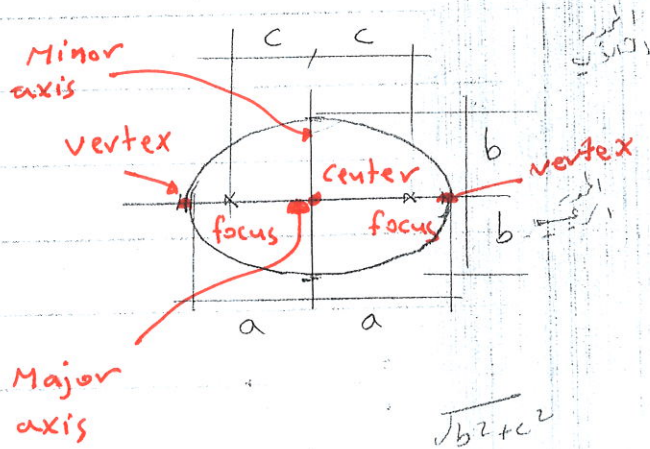 c c
Minor
axis
vertex
b
center
vertex
focus
focus
b
a a
Major
axis
√b²+c²